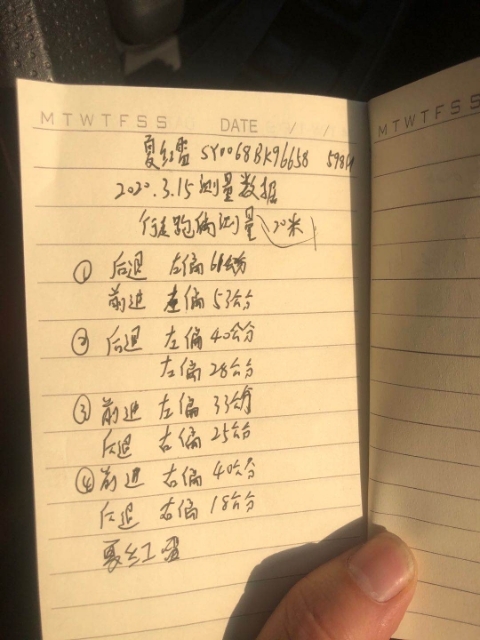 M T W T F S S DATE / /
M T W T F S S
夏红雷 SY0068BK96658 598H
2020.3.15测量数据
行走跑偏测量(20米)
① 后退 左偏 61公分
前进 左偏 53公分
② 后退 左偏 40公分
左偏 28公分
③ 前进 左偏 33公分
后退 右偏 25公分
④ 前进 右偏 40公分
后退 右偏 18公分
夏红雷